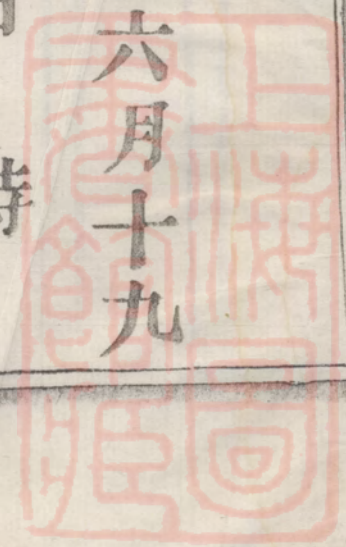 六月十九
上海圖
書館藏